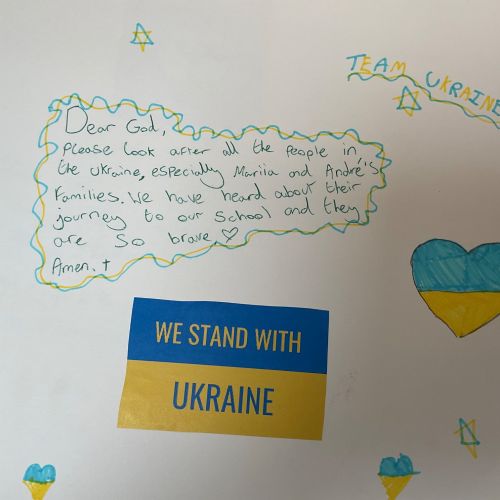 TEAM UKRAINE
Dear God,
Please look after all the people in
the Ukraine, especially Mariia and André's
Families. We have heard about their
journey to our School and they
are so brave ♡
Amen. †
WE STAND WITH
UKRAINE